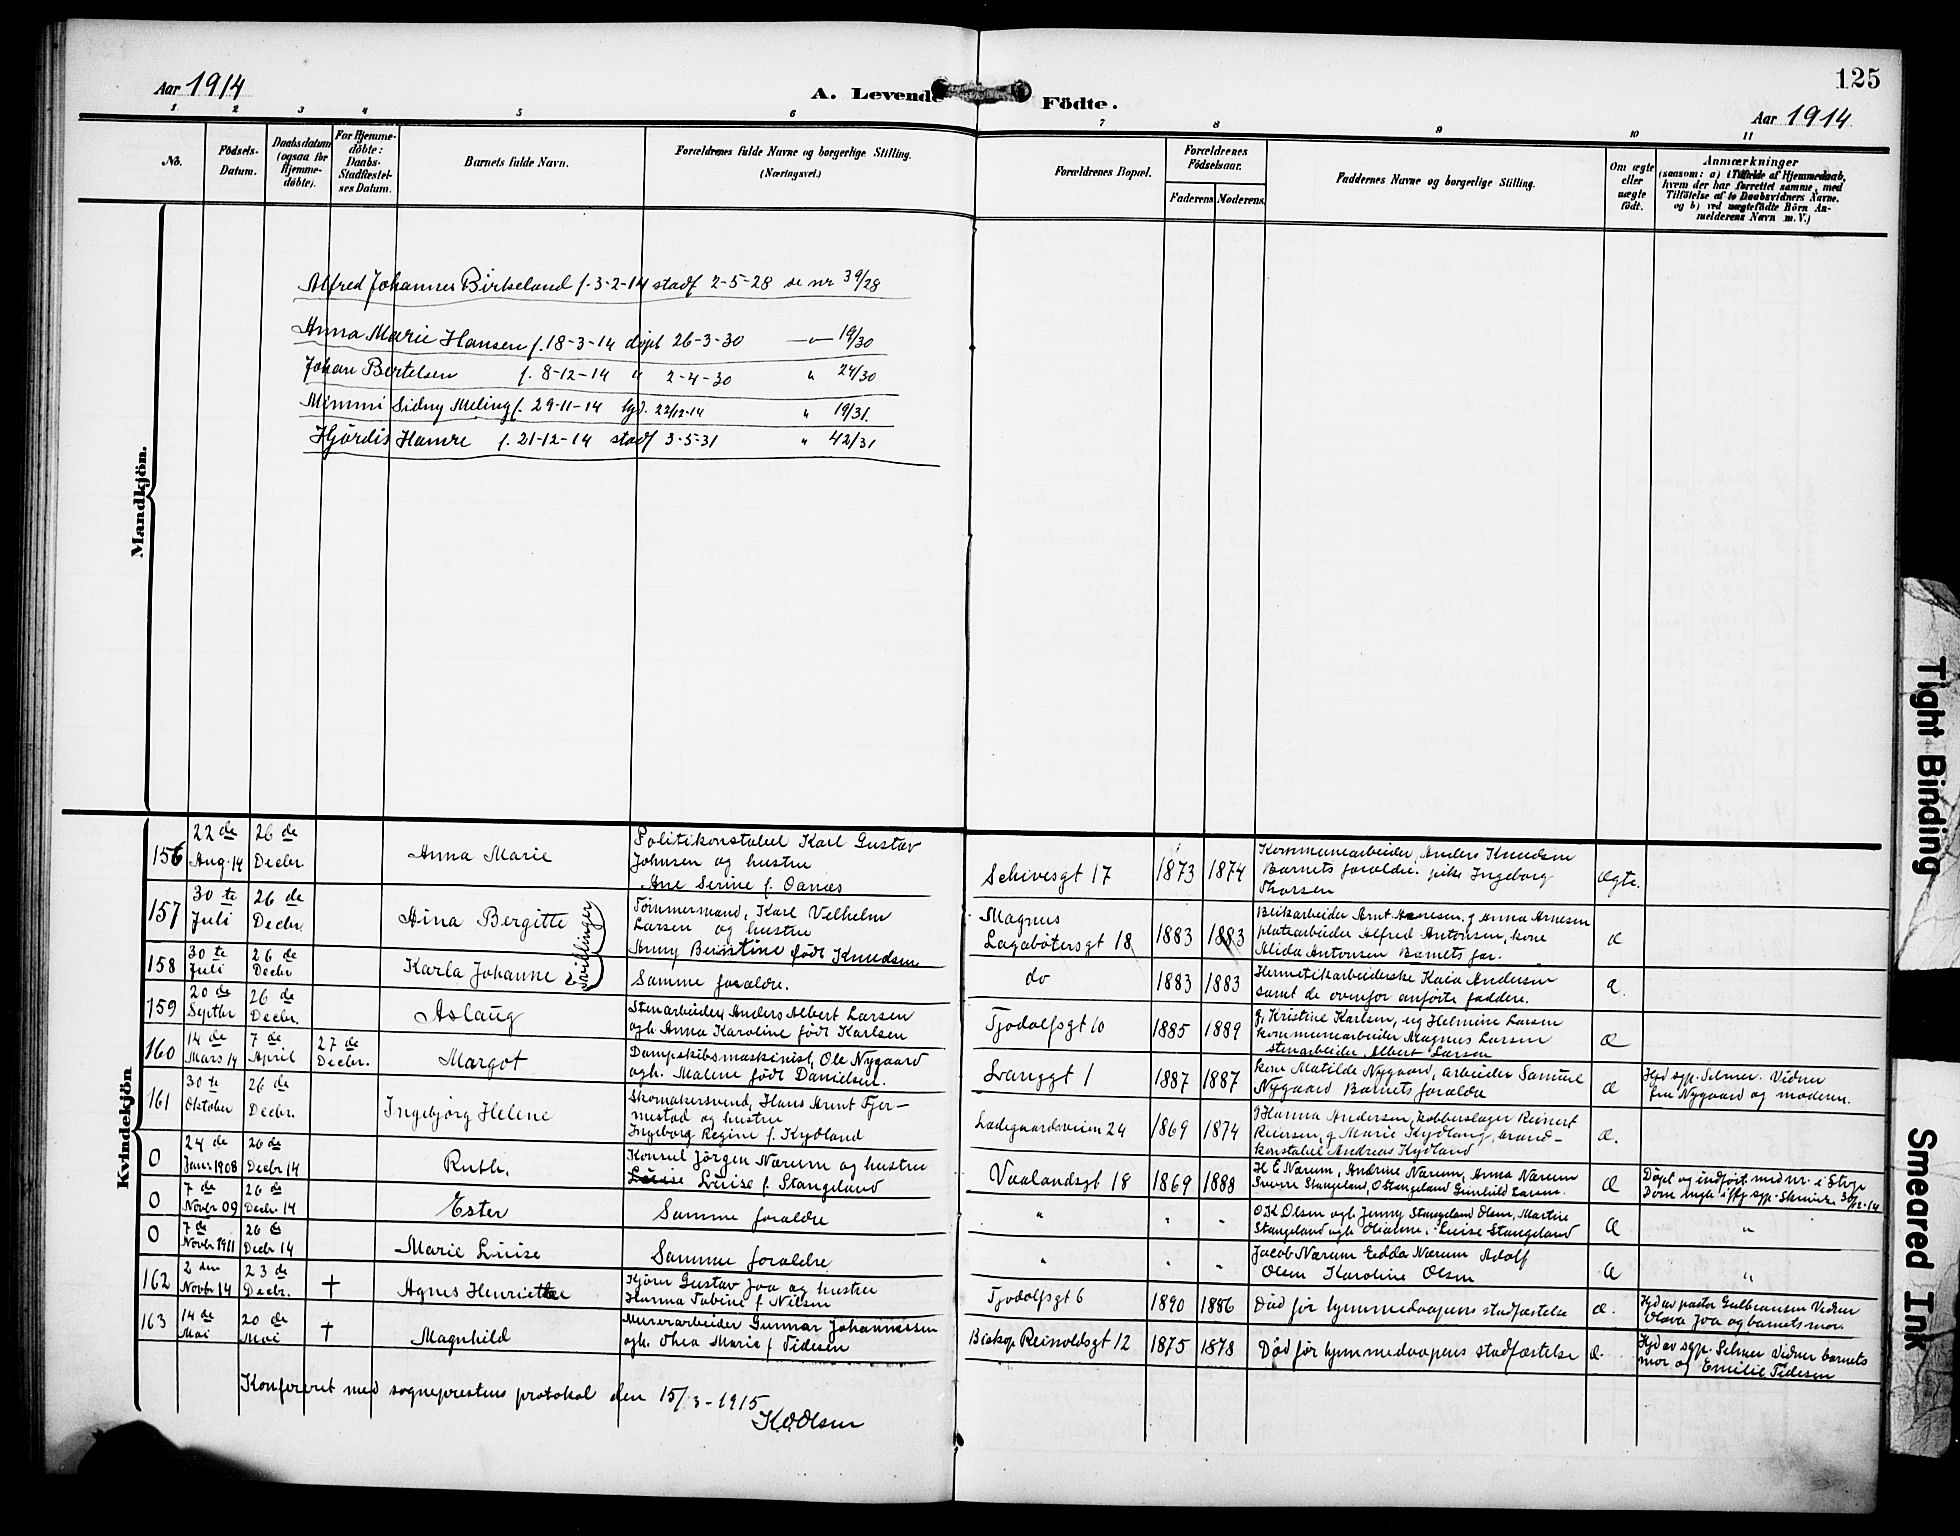 Aar 1914
A. Levende Födte.
125
Aar 1914
1 2 3 4 5 6 7 8 9 10 11
No.
Födsels-
Datum.
Daabsdatum
(ogsaa for
Hjemme-
döbte).
For Hjemme-
döbte:
Daabs-
Stadfæstel-
ses Datum.
Barnets fulde Navn.
Forældrenes fulde Navne og borgerlige Stilling.
(Næringsvei.)
Forældrenes Bopæl.
Forældrenes
Födselsaar.
Faderens. Moderens.
Faddernes Navne og borgerlige Stilling.
Om ægte
eller
uægte
födt.
Anmærkninger
(saasom: a) i Tilfælde af Hjemmedaab,
hvem der har forrettet samme, med
Tilföielse af to Daabsvidners Navne.
og b) ved uægtefödte Börn An-
melderens Navn m. V.)
Mandkjön.
Alfred Johannes Birkeland f. 3-2-14 stadf 2-5-28 se nr 39/28
Anna Marie Hansen f. 18-3-14 döpt 26-3-30 —"— 19/30
Johan Bertelsen f. 8-12-14 " 2-4-30 " 24/30
Mimmi Sidny Meling f. 29-11-14 hjd. 22/12-14 " 19/31.
Hjördis Hamre f. 21-12-14 stadf 3-5-31 " 42/31
Kvindekjön
156
22 de
Aug. 14
26 de
Decbr
Anna Marie
Politikonstabel Karl Gustav
Johnsen og hustru
Ane Serine f. Oanæs
Schivesgt 17
1873 1874
Kommunearbeider, Anders Knudsen
Barnets forældre. pike Ingeborg
Thorsen
Ægte.
157
30 te
Juli
26 de
Decbr.
Hina Bergitte
tvillinger
Tømmermand, Karl Velhelm
Larsen og hustru
Anny Berntine födt Knudsen
Magnus
Lagabøtersgt 18
1883 1883
Blikarbeider Arnt Arnesen. g Anna Arnesen
platearbeider Alfred Antonsen, kone
Alida Antonsen Barnets far.
Æ
158
30 te
Juli
26 de
Decbr
Karla Johanne
Samme forældre.
do
1883 1883
Hermetikarbeiderske Kaia Andersen
samt de ovenfor anførte faddere.
Æ.
159
20 de
Septbr
26 de
Decbr.
Aslaug
Stenarbeider Anders Albert Larsen
ogh. Anna Karoline født Karlsen
Tjodolfsgt 10
1885 1889
g. Kristine Karlsen, ug Helmine Larsen
kommunearbeider Magnus Larsen
stenarbeider Albert Larsen
Æ
160
14 de
Mars 14
7 de
April
27 de
Decbr.
Margot
Dampskibsmaskinist, Ole Nygaard
ogh. Malene født Danielsen.
Langgt 1
1887 1887
kone Matilde Nygaard, arbeider Samuel
Nygaard Barnets forældre
Æ
Hjd sgp. Selmer. Vidner
fru Nygaard og moderen.
161
30 te
Oktober
26 de
Decbr.
Ingebjörg Helene
Skomakersvend, Hans Arnt Fjer-
mestad og hustru
Ingeborg Regine f. Kydland
Ladegaardsveien 24
1869 1874
g Hanna Andersen, kobberslager Reinert
Reiersen, g Marie Kydland, brand-
konstabel Andreas Kydland
Æ.
0
24 de
Janr 1908
26 de
Decbr 14
Ruth.
Konsul Jörgen Nærum og hustru
Luise f. Stangeland
Vaalandsgt 18
1869 1888
H. E Nærum, Andrine Nærum, Anna Nærum
Sverre Stangeland, O Stangeland Gunhild Larsen.
Æ
0
7 de
Novbr 09
26 de
Decbr 14
Ester
Samme forældre
" " "
O K Olsen ogh Jenny Stangeland Olsen, Martin
Stangeland ogh Oleanne. Luise Stangeland
Æ
"
0
7 de
Novbr 1911
26 de
Decbr 14
Marie Luise
Samme forældre
" " "
Jacob Nærum Edda Nærum Adolf
Olsen Karoline Olsen
Æ
"
162
2 den
Novbr 14
23 de
Decbr.
†
Agnes Henriette
Kjörer Gustav Joa og hustru
Hanna Tobine f. Nilsen
Tjodolfsgt 6
1890 1886
Død før hjemmedaapens stadfæstelse
Æ.
Hjd av pastor Gulbransen Vidner
Olava Joa og barnets mor.
163
14 de
Mai
20 de
Mai
†
Magnhild
Murerarbeider Gunnar Johannessen
ogh. Thea Marie f Tidesen
Biskop Reinoldsgt 12
1875 1878
Død før hjemmedaapens stadfæstelse
Æ.
Hjd av sgp. Selmer Vidner barnets
mor og Emilie Tidesen
Konfereret med sogneprestens protokol den 15/3-1915
K.O.Olsen
Tight Binding
Smeared Ink